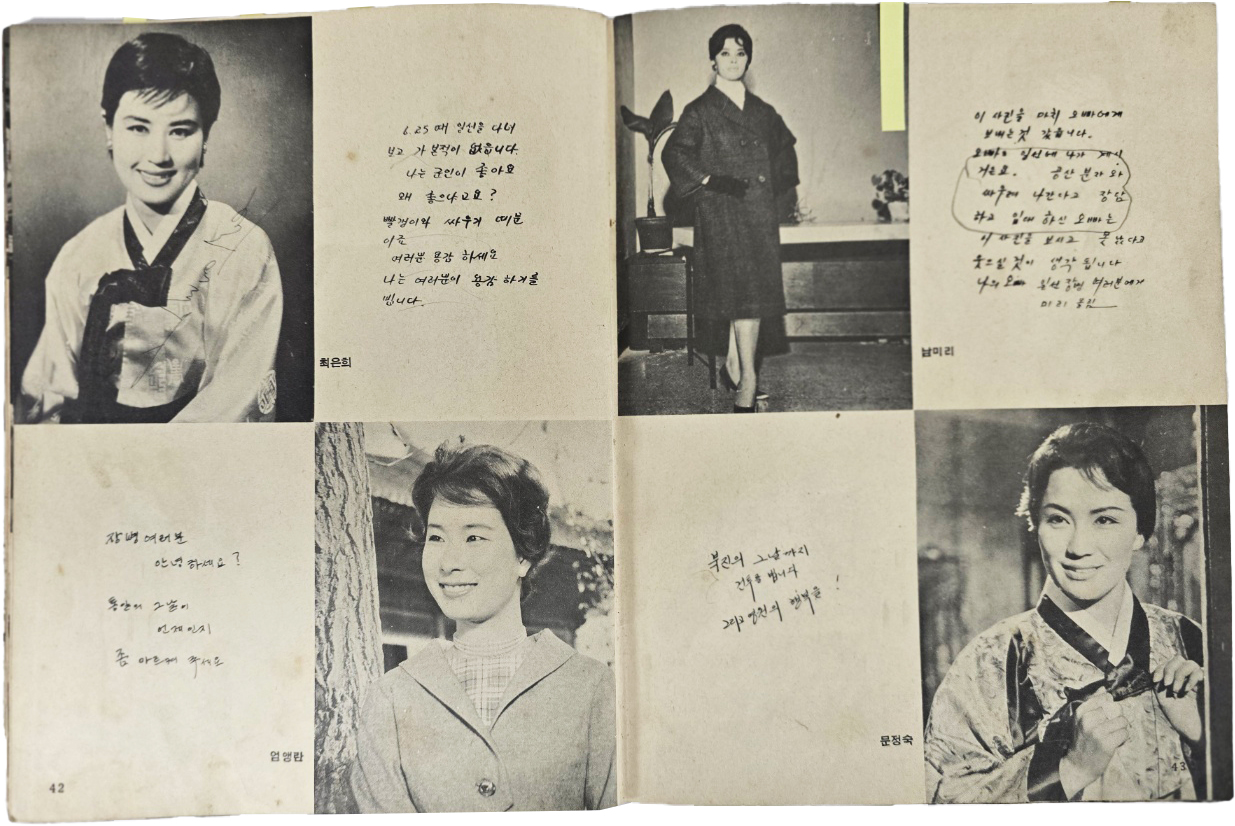 6.25 때 일선을 다녀
보고 가 본적이 없습니다.
나는 군인이 좋아요
왜 좋으냐고요?
빨갱이와 싸우기 때문
이죠
여러분 용감 하세요
나는 여러분이 용감 하기를
빕니다.
최은희
장병 여러분
안녕하세요?
통일의 그날이
언제인지
좀 아르켜 주세요
엄앵란
42
이 사진을 마치 오빠에게
보내는것 같습니다.
오빠는 일선에 나가 계시
거든요. 공산 분자와
싸우러 나간다고 장담
하고 입대 하신 오빠는
이 사진을 보시고 못 났다고
웃으실 것이 생각 됩니다
나의 오빠 일선 장병 여러분에게
미리 드림
남미리
북진의 그날까지
건투를 빕니다
그리고 영원의 행복을!
문정숙
43